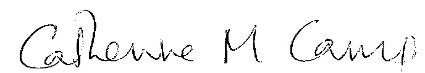 Catherine M Camp